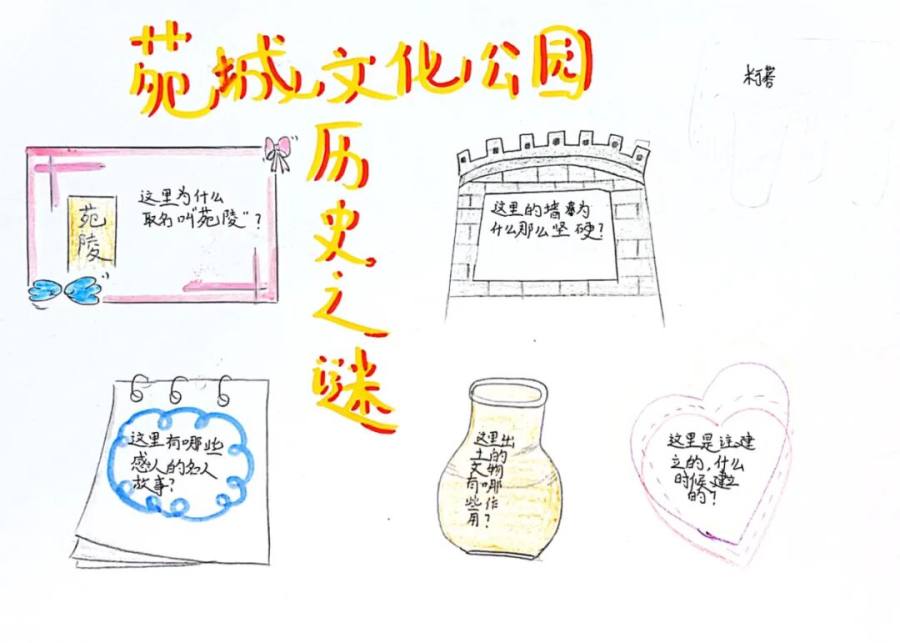 苑城文化公园
历史之谜
苑陵
这里为什么
取名叫"苑陵"?
这里的墙为
什么那么坚硬?
这里有哪些
感人的名人
故事?
这里出
土的
文物
有哪
些作
用?
这里是谁建
立的,什么
时候建立
的?